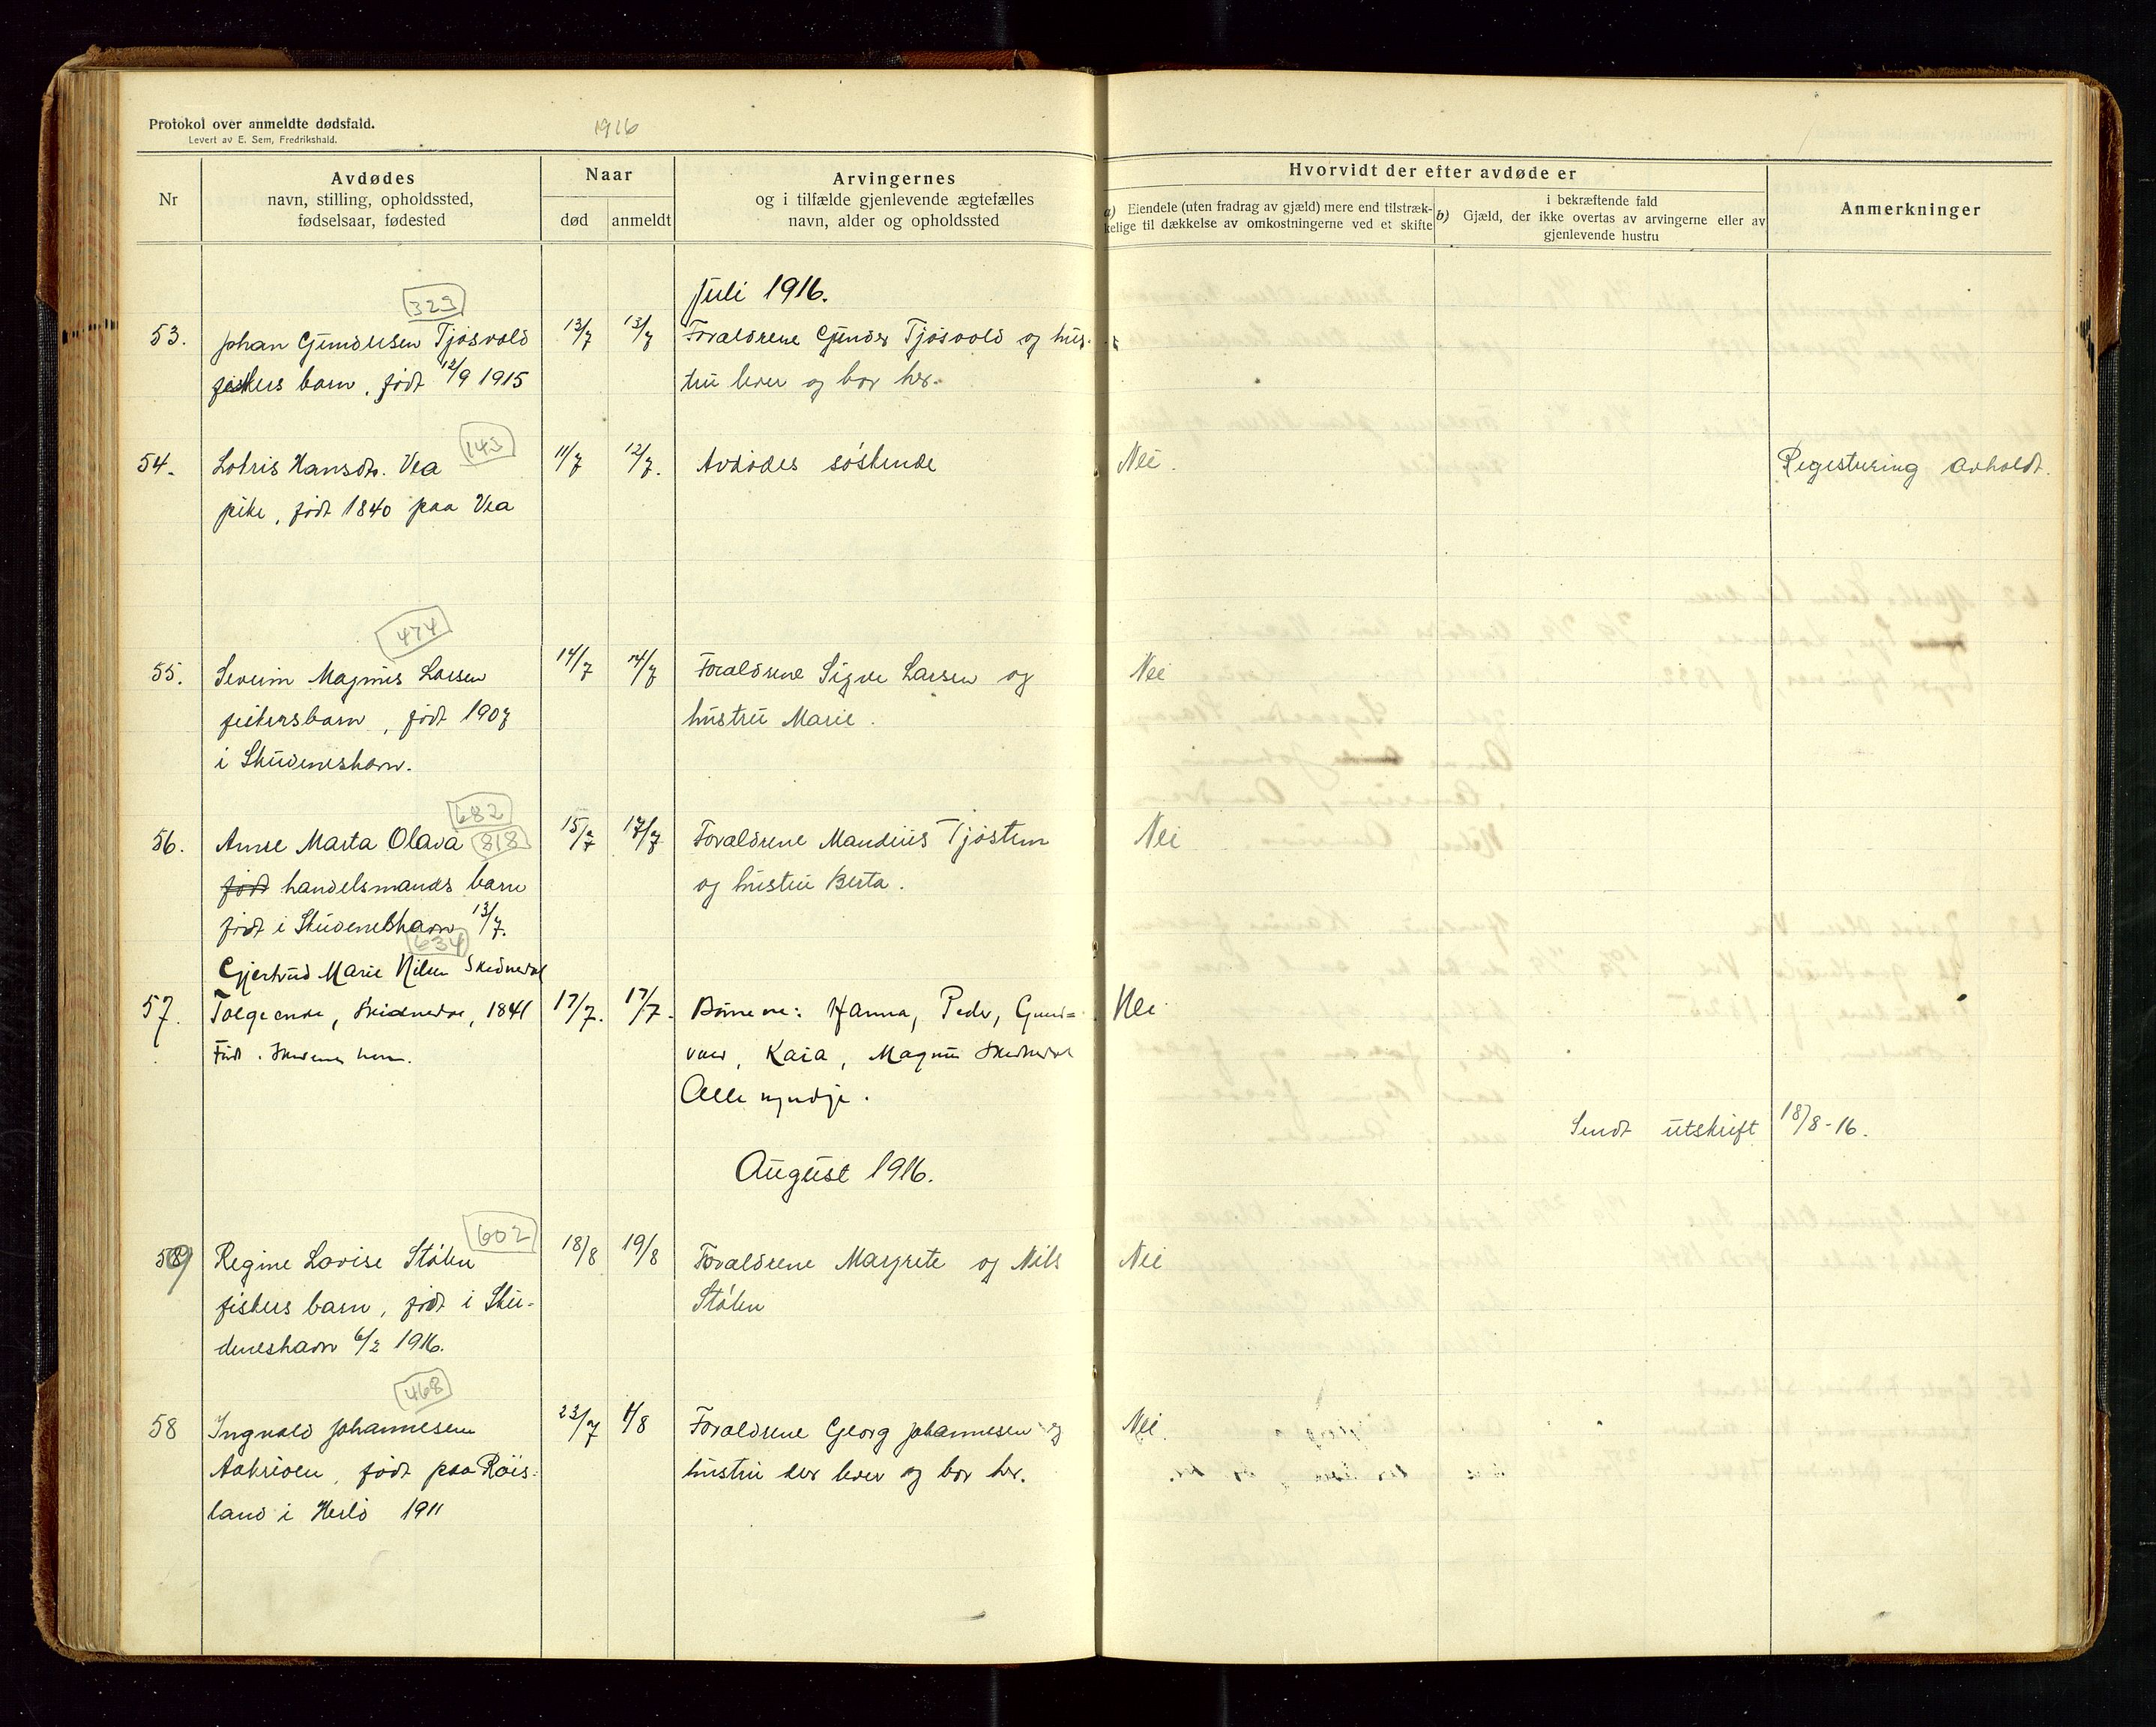 Protokol over anmeldte dødsfald.
Levert av E. Sem, Fredrikshald.
1916
Nr
Avdødes
navn, stilling, opholdssted,
fødselsaar, fødested
Naar
død
anmeldt
Arvingernes
og i tilfælde gjenlevende ægtefælles
navn, alder og opholdssted
Hvorvidt der efter avdøde er
a) Eiendele (uten fradrag av gjæld) mere end tilstræk-
kelige til dækkelse av omkostningerne ved et skifte
i bekræftende fald
b) Gjæld, der ikke overtas av arvingerne eller av
gjenlevende hustru
Anmerkninger
Juli 1916.
323
53. Johan Gundersen Tjøsvold 13/7 13/7 Forældrene Gunder Tjøsvold og hus-
fiskers barn, født 12/9 1915 tru lever og bor her.
143
54. Lovris Hansdtr. Vea 11/7 12/7. Avdødes søskende Nei. Registrering avholdt.
pike, født 1840 paa Vea
474
55. Severin Magnus Larsen 14/7 14/7 Forældrene Sigve Larsen og Nei
fiskersbarn, født 1907 hustru Marie.
i Skudeneshavn.
682
56. Anne Marta Olava 818 15/7 17/7 Forældrene Mandius Tjøstem Nei
født handelsmands barn og hustru Berta.
født i Skudeneshavn 13/7.
634
Gjertrud Marie Nilsen Skednedal
57. Tolgeende, Skidnedal, 1841 17/7. 17/7. Børnene: Hanna, Peder, Gund- Nei
Født i Skudeneshavn. , Kaia, Magnus Skednedal
Alle myndige.
Sendt utskrift 18/8-16.
August 1916.
602
59 Regine Lovise Stølen 18/8 19/8 Forældrene Margrete og Nils Nei
fiskers barn, født i Sku- Stølen
deneshavn 6/2 1916.
468
58 Ingvald Johannesen 23/7 1/8 Forældrene Georg Johannesen og Nei.
Aakreoen, født paa Røis- hustru der lever og bor her.
land i Herlø 1911